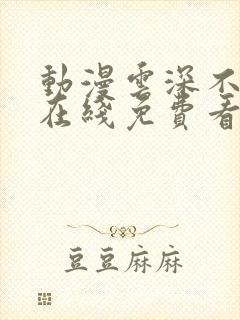 動漫雲深不
在綫免費看
豆豆麻麻